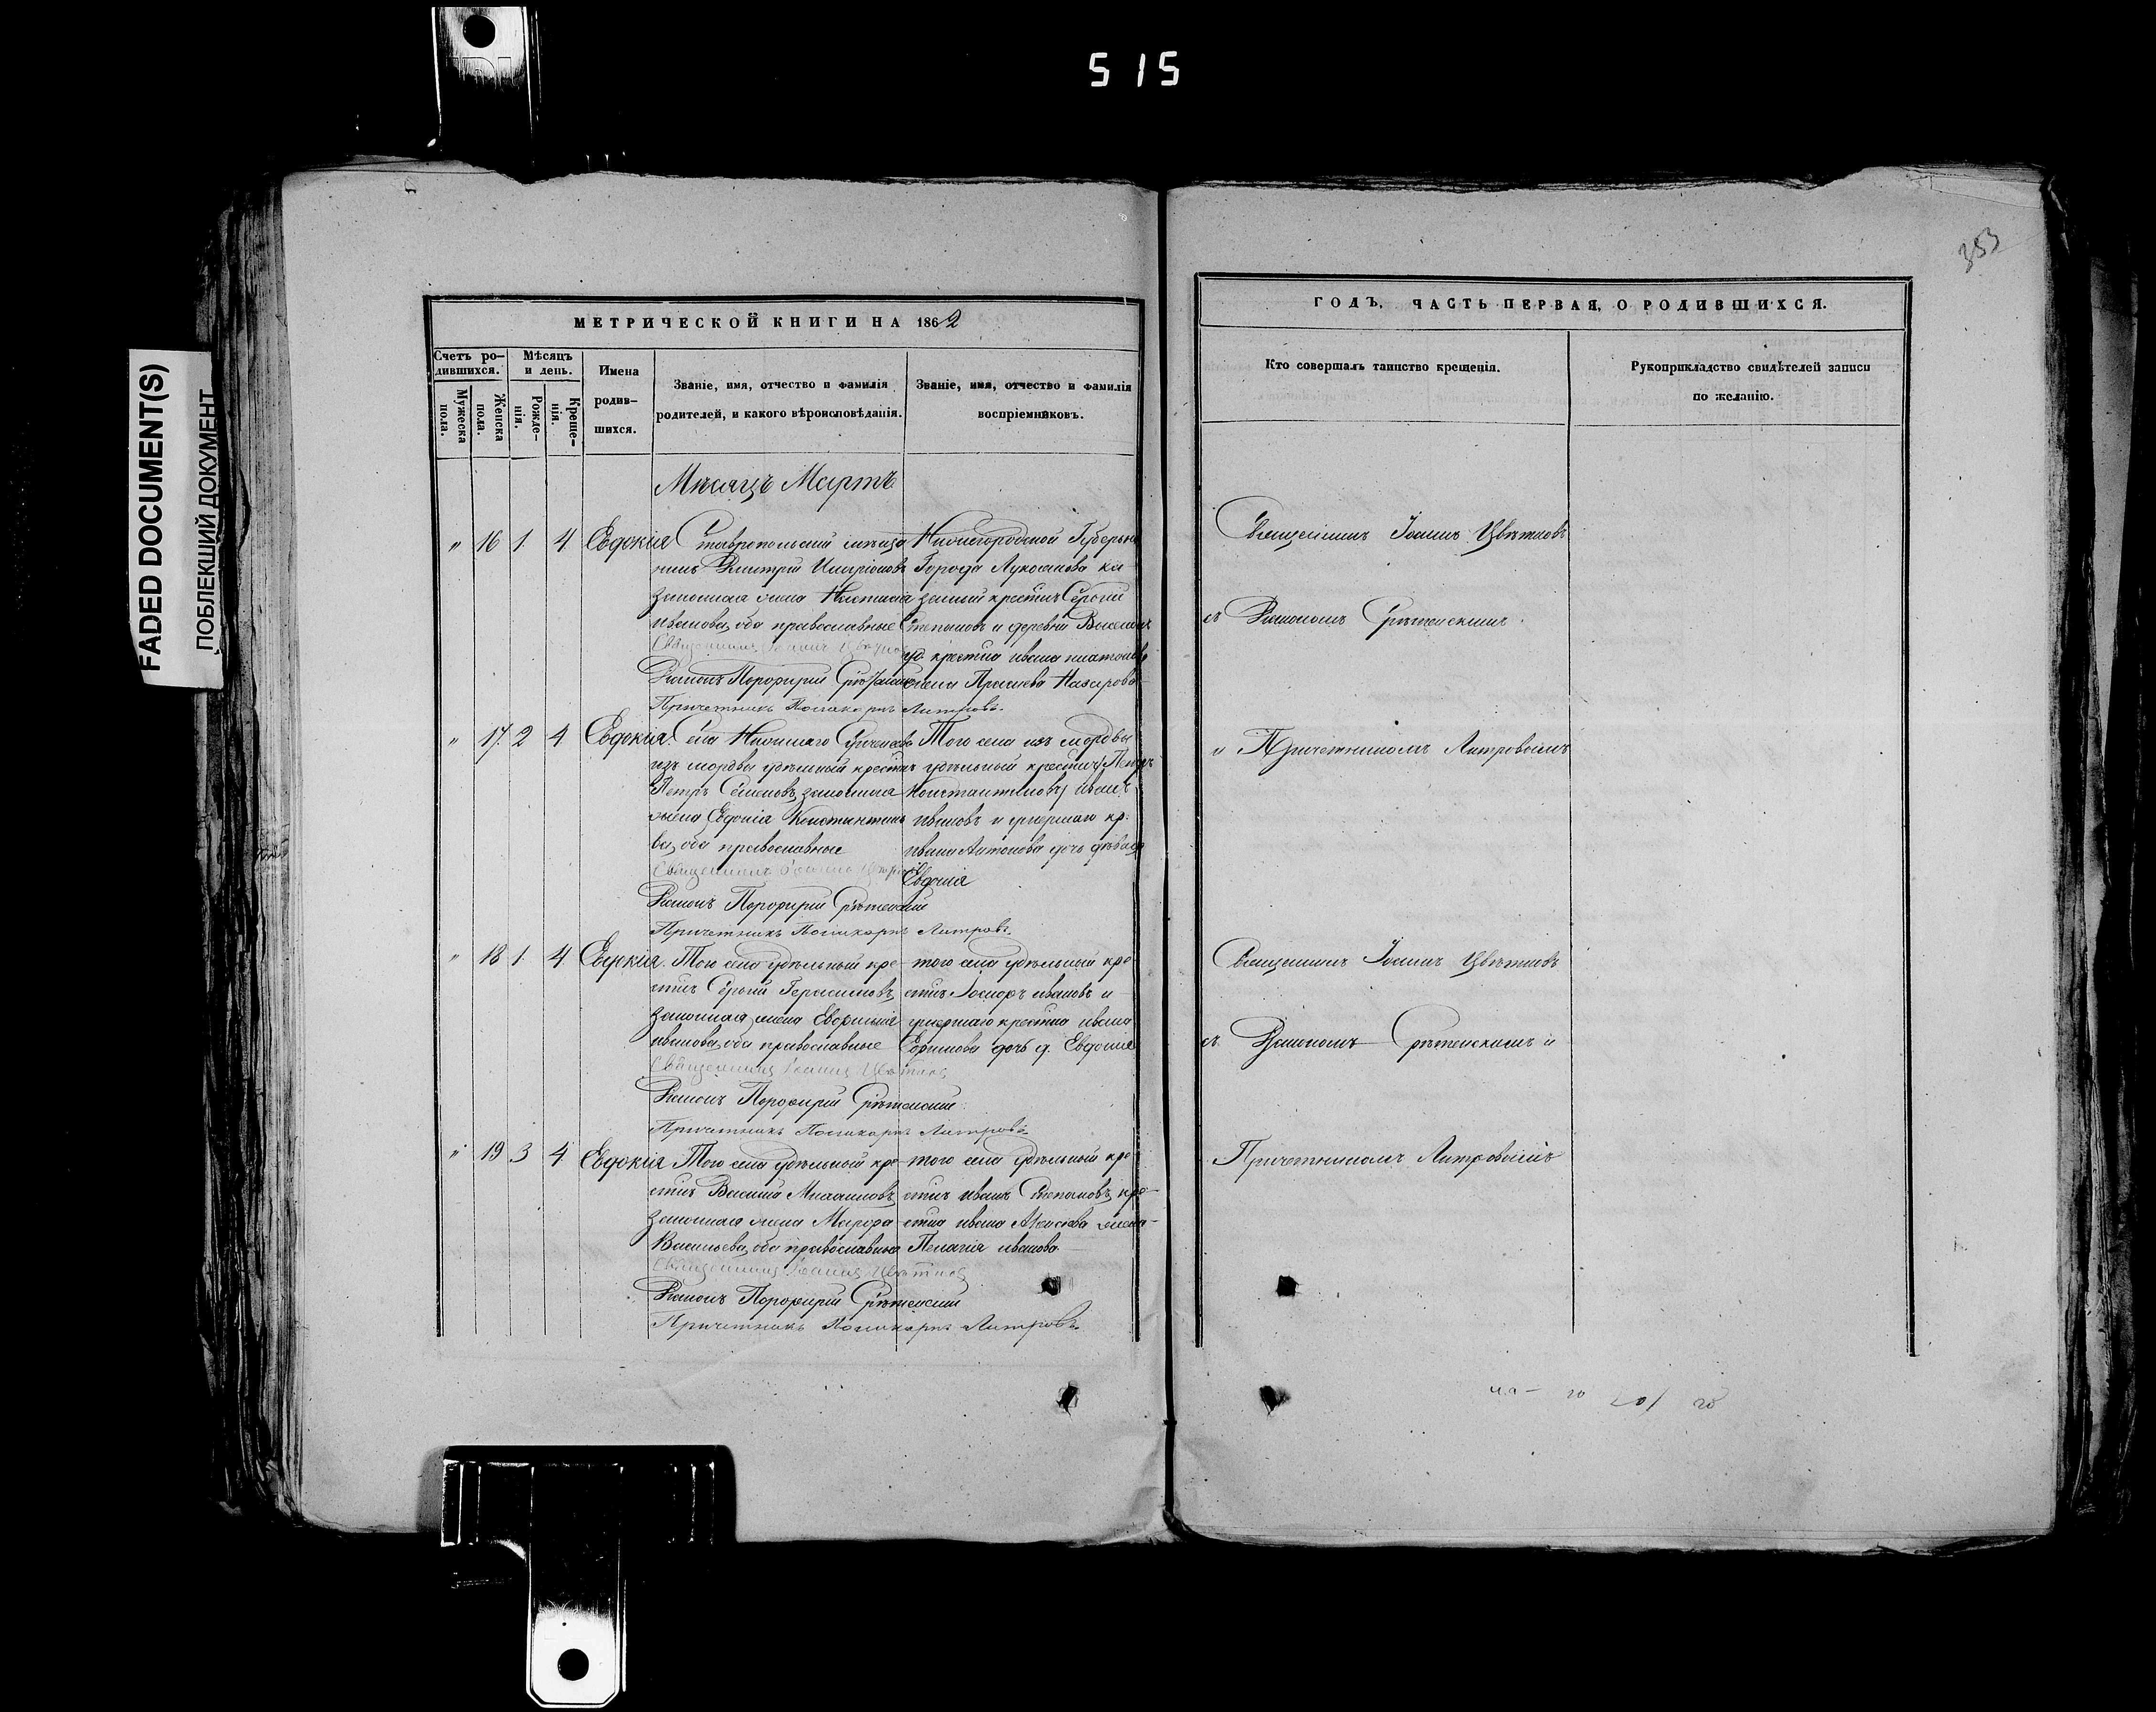 515
FADED DOCUMENT(S)
ПОБЛЕКШИЙ ДОКУМЕНТ
353
МЕТРИЧЕСКОЙ КНИГИ НА 1862
Счетъ ро-
дившихся.
Мужеска
пола.
Женска
пола.
Мѣсяцъ
и день.
Рожде-
нія.
Креще-
нія.
Имена
родив-
шихся.
Званіе, имя, отчество и фамилія
родителей, и какого вѣроисповѣданія.
Званіе, имя, отчество и фамилія
воспріемниковъ.
Мѣсяцъ Мартъ
" 16 1. 4 Евдокия
Ставропольский мѣща
нинъ Дмитрий
законная жена Настасия
Иванова, оба православные
Священникъ Иоаннъ Цвѣтков
Диаконъ Порфирий Срѣтенский
Причетникъ Поликарпъ Литровъ.
Нижегородской Губерни
Города Лукоянова ка
зенный крестин Сергий
Степановъ и деревни
уд. крестина Ивана Платонова
жена Назарова
" 17. 2 4 Евдокия.
Села Нижняго
изъ мордвы удѣльный крестин
Петръ Семеновъ, законная
жена Евдокия Константино
ва, оба православные
Священникъ Иоаннъ
Диаконъ Порфирий Срѣтенский
Причетникъ Поликарпъ Литровъ.
Того села изъ мордвы
удѣльный крестин
Константиновъ Иван
Ивановъ и умершаго кр.
Ивана Антонова дочь дѣвица
Евдокия
" 18 1. 4 Евдокия.
Того села удѣльный кре-
стин Сергий Герасимовъ,
законная жена Евфимия
Иванова, оба православные
Священникъ Иоаннъ Цвѣтков
Диаконъ Порфирий Срѣтенский
Причетникъ Поликарпъ Литровъ.
того села удѣльный кре-
стин Иванов и
умершаго крестина Ивана
Ефимова дочь д. Евдокия
" 19 3 4 Евдокия
Того села удѣльный кре-
стин Василий
законная жена Марфа
Васильева, оба православные
Священникъ Иоаннъ Цвѣтков
Диаконъ Порфирий Срѣтенский
Причетникъ Поликарпъ Литровъ.
того села удѣльный кре-
стин Иван Степановъ, кре-
стина Ивана Алексѣева жена
Пелагия Иванова
ГОДЪ, ЧАСТЬ ПЕРВАЯ, О РОДИВШИХСЯ.
Кто совершалъ таинство крещенія.
Рукоприкладство свидѣтелей записи
по желанію.
Священникъ Іоаннъ Цвѣтковъ
съ Диакономъ Срѣтенскимъ
и Причетникомъ Литровымъ
Священникъ Іоаннъ Цвѣтковъ
съ Диакономъ Срѣтенскимъ и
Причетникомъ Литровымъ